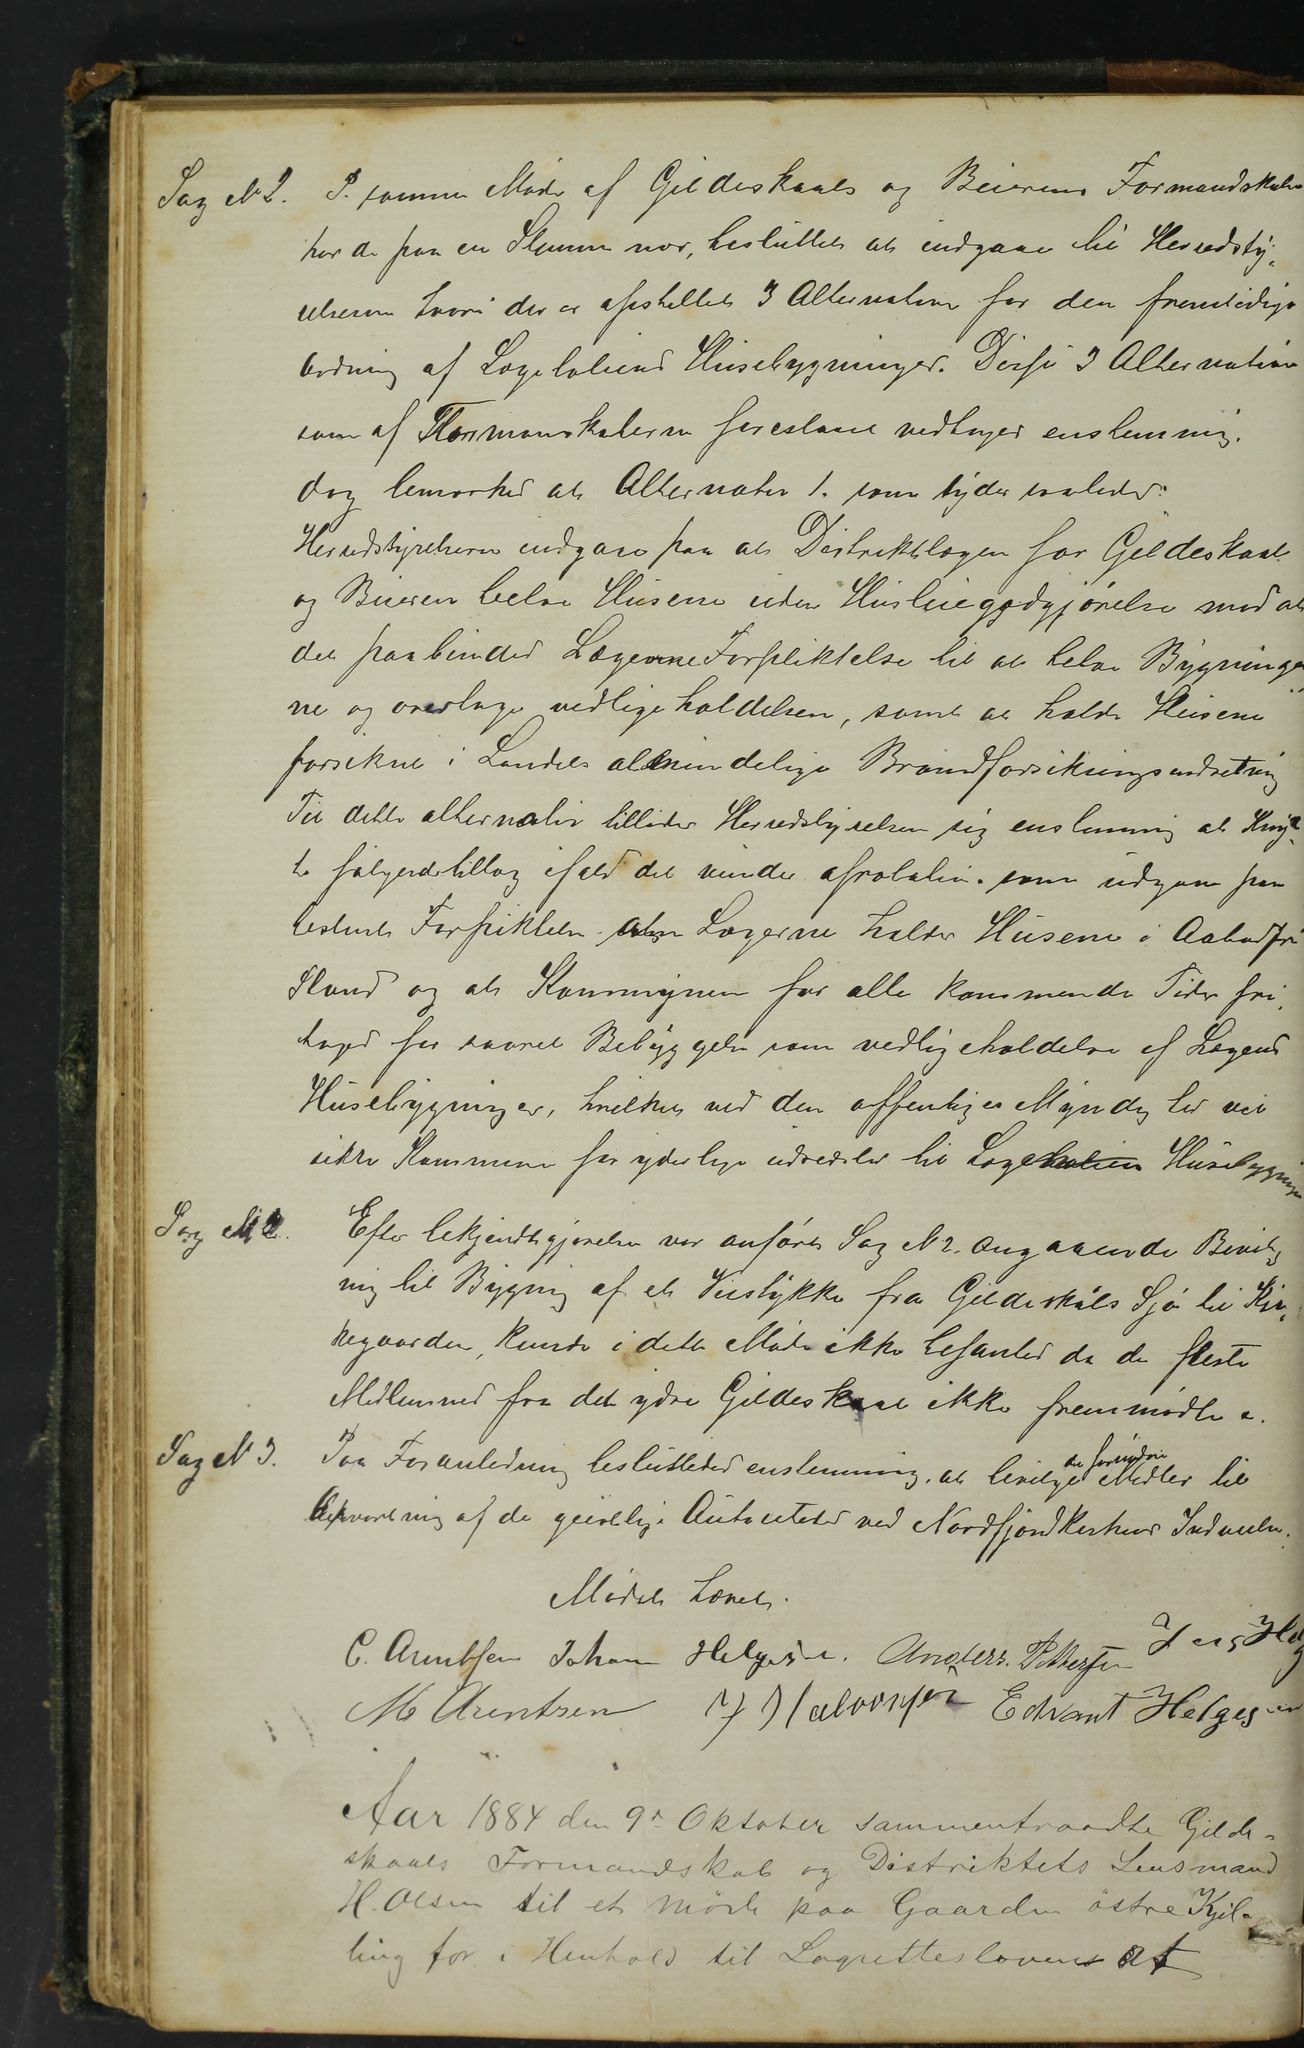 Sag № 2. P. samme Møde af Gildeskaals og Beierens Formandskaber
har de paa en Stemme nær, besluttet at indgaae til Herredsty,
relserne hvori der er opstillet 3 Alternativer for den fremtidige
Ordning af Lægeboliens Husebygninger. Disse 3 Alternativer
som af Formanskaberne foreslaaes vedtages enstemmig.
dog bemærkes at Alternativ 1. som lyder saaledes:
Herredstyrelserne indgaar paa at Distriktslægen for Gildeskaal
og Beieren beboe Husene uden Husleiegodtgjørelse mod at
det paabindes Lægerne Forpliktelse til at beboe Bygninge
ne og overtage vedligeholdelsen, samt at holde Husene
forsikret i Landets almindelige Brandforsikringsindretning
Til dette alternativ tillader Herredstyrelsen sig enstemmig at Knyt,
te følgende tillæg ifald det vinder afrobation. som udgaar paa
bestemt Forpliktelse at Lægerne holder Husene i Aabodfri
Stand og at Kommunen for alle kommende Tider fri,
tages for saavel Bebyggelse som vedligeholdelse af Lægens
Husebygninger, hvilket ved den offentlige Myndighed vil
sikre Kommunen for yderlige udredsler til Lægeboliens Husebygninger
Sag № 2. Efter bekjendtgjørelsen var anført Sag № 2. angaaende Bevilg
ning til Bygning af et Veistykke fra Gildeskåls Sjø til Kir,
kegaarden, kunde i dette Møde ikke behandles da de fleste
Medlemmer fra det ydre Gildeskaal ikke fremmødte.
Sag № 3. Paa Foranledning besluttedes enstemmig, at bevilge de fornødne Midler til
Opvartning af de geistlige Autoriteter ved Nordfjordkirkens Indvielse.
Mødet hævet.
C. Arntsen Johan Helgesen. Anders. Pettersen Jens Helg
M Arentsen J Halvorsen Edvant Helgesen
Aar 1884 den 9de Oktober sammentraadte Gilde-
skaals Formandskab og Distriktets Lensmand
H. Olsen til et møde paa Gaarden østre Kjel-
ling for i Henhold til Lagretteslovens at